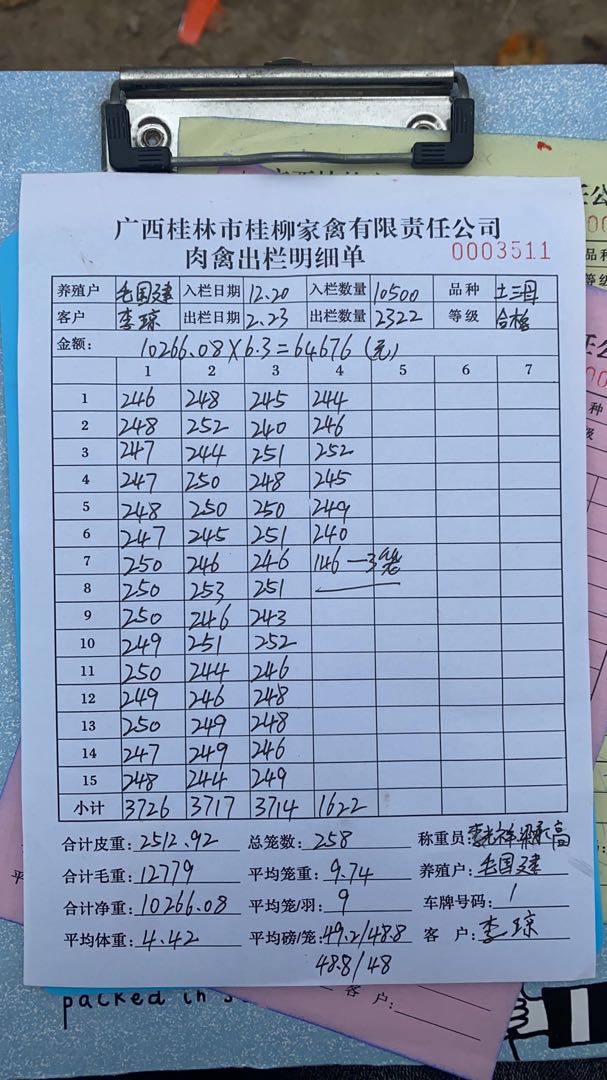 广西桂林市桂柳家禽有限责任公司
肉禽出栏明细单 0003511
养殖户 毛国建 入栏日期 12.20 入栏数量 10500 品种 土三母
客户 李琼 出栏日期 2.23 出栏数量 2322 等级 合格
金额: 10266.08×6.3=64676(元)
1 2 3 4 5 6 7
1 246 248 245 244
2 248 252 240 246
3 247 244 251 252
4 247 250 248 245
5 248 250 250 249
6 247 245 251 240
7 250 246 246 146 —3笼
8 250 253 251
9 250 246 243
10 249 251 252
11 250 244 246
12 249 246 248
13 250 249 248
14 247 249 246
15 248 244 249
小计 3726 3717 3714 1622
合计皮重: 2512.92 总笼数: 258 称重员:
合计毛重: 12779 平均笼重: 9.74 养殖户: 毛国建
合计净重: 10266.08 平均笼/羽: 9 车牌号码: 1
平均体重: 4.42 平均磅/笼: 49.2/48.8 客户: 李琼
48.8/48
packed in
客户: